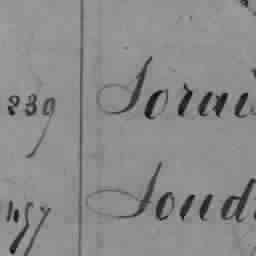 239 Sorai
457 Soud